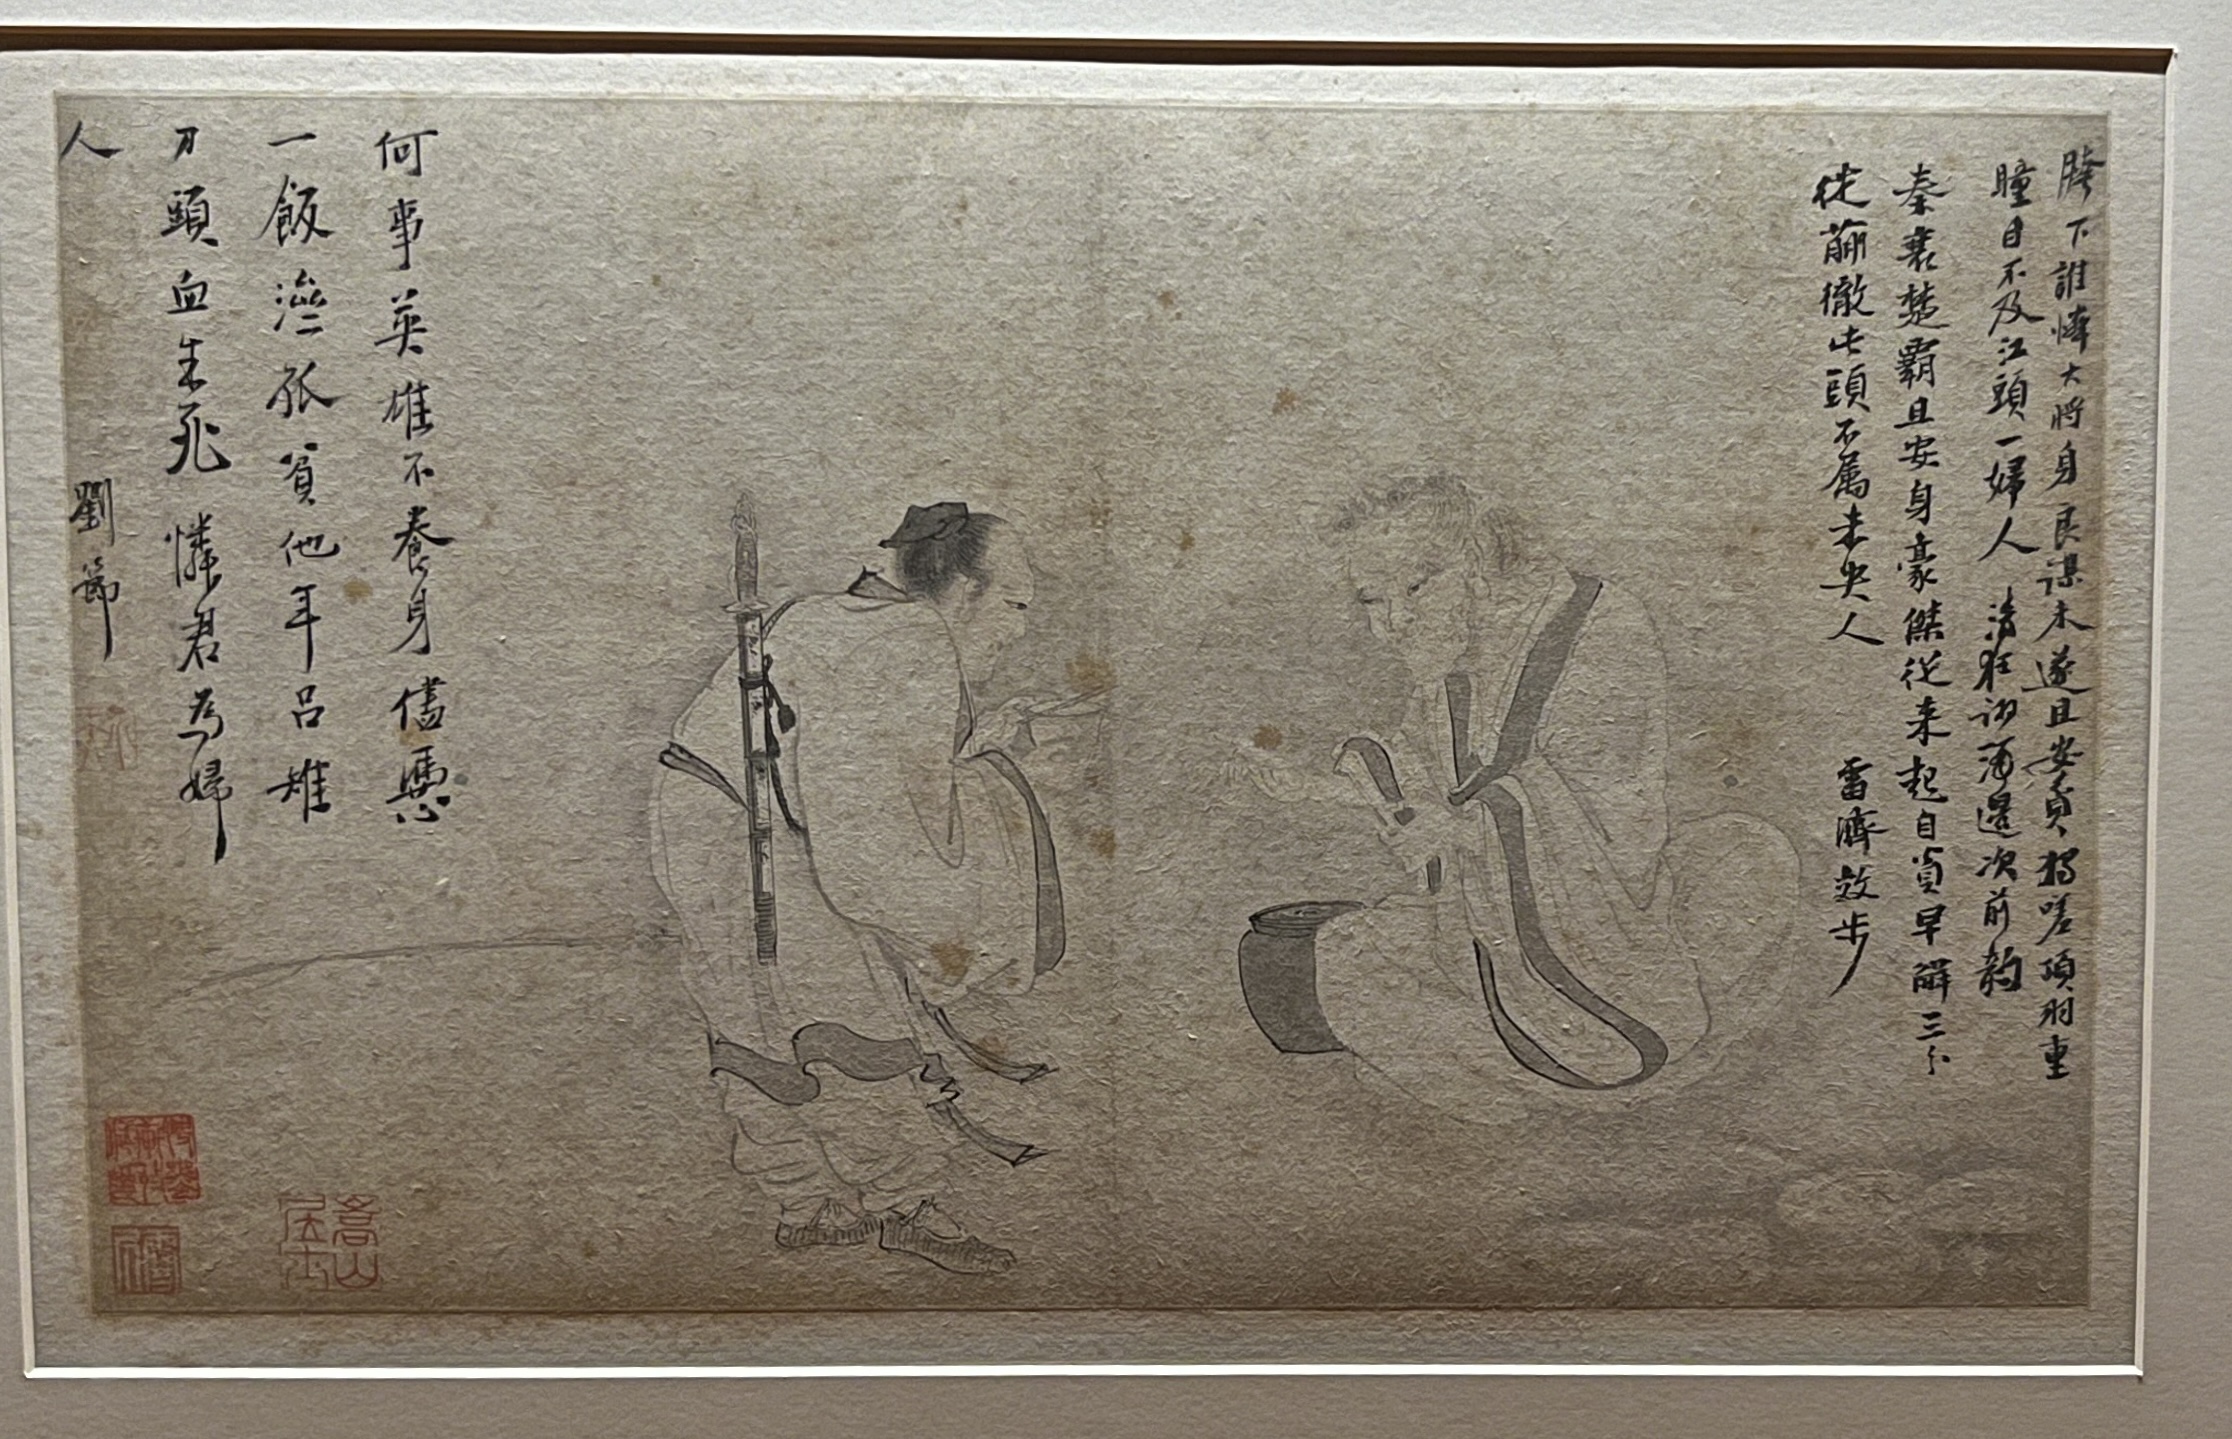 胯下誰憐大將身良謀未遂且安貧猶嗟項羽重
瞳目不及江頭一婦人 清狂酒邊次前韵
秦衰楚霸且安身豪傑從来起自貧早解三分
從蒯徹此頭不属未央人 雷濟效步
何事英雄不養身儘憑
一飯濟孤貧他年呂雉
刀頭血憐君為婦
人
劉節
嵩山居士